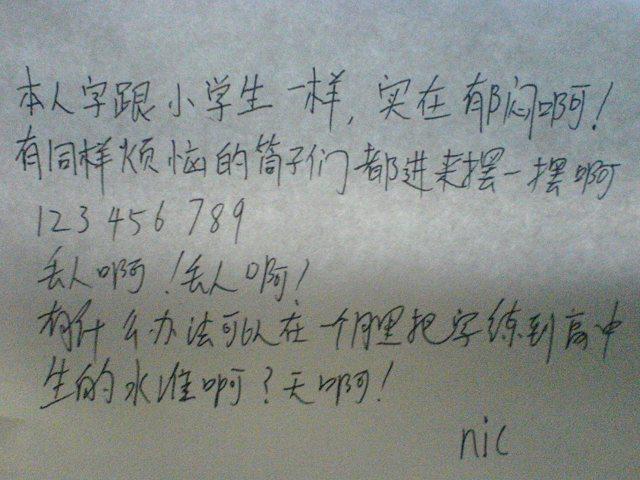 本人字跟小学生一样，实在郁闷啊！
有同样烦恼的筒子们都进来摆一摆啊
123 456 789
丢人啊！丢人啊！
有什么办法可以在一个月里把字练到高中
生的水准啊？天啊！
nic